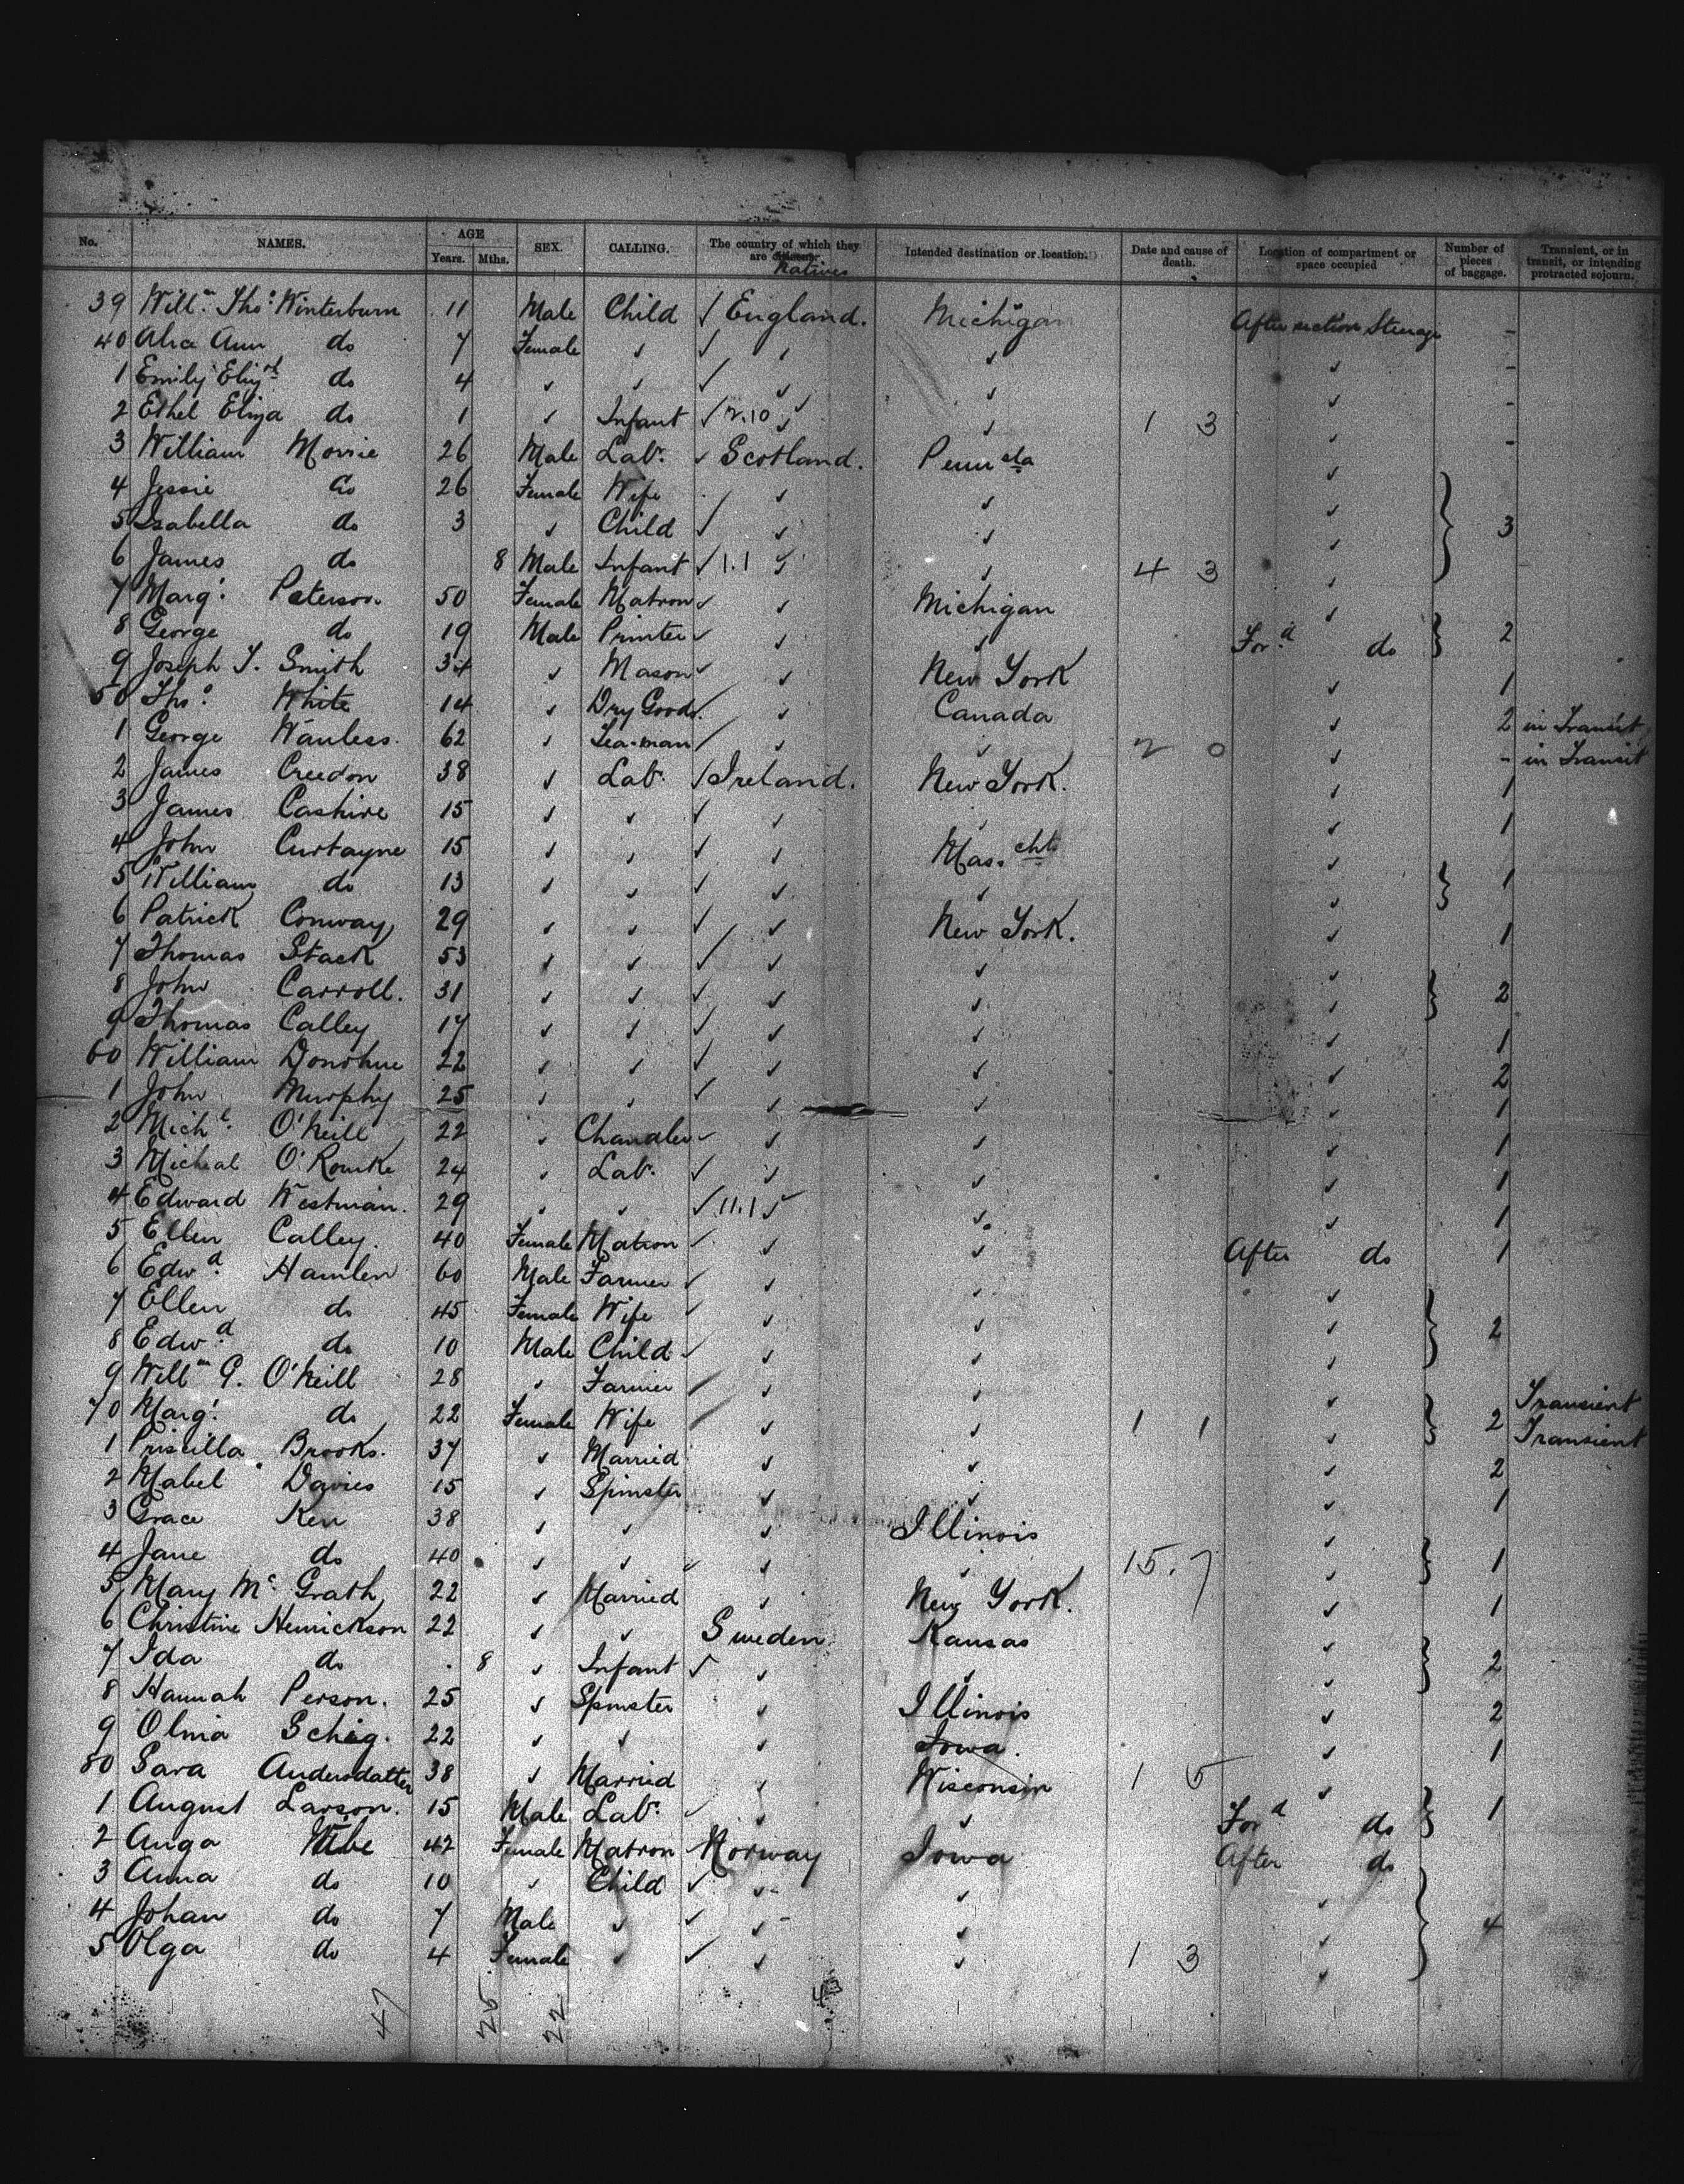 No. NAMES. AGE Years. Mths. SEX. CALLING. The country of which they are citizens. Natives Intended destination or location. Date and cause of death. Location of compartment or space occupied Number of pieces of baggage. Transient, or in transit, or intending protracted sojourn.
39 Willm. Thos. Winterburn 11 Male Child ✓ England. Michigan After section Steerage -
40 Alice Ann do 7 Female ✓ ✓ ✓ ✓ ✓ -
1 Emily Elizth do 4 ✓ ✓ ✓ ✓ ✓ ✓ -
2 Ethel Eliza do 1 ✓ Infant ✓ 2.10 ✓ ✓ 1 3 ✓ -
3 William Morrie 26 Male Labr. ✓ Scotland. Pennsla ✓
4 Jessie do 26 Female Wife ✓ ✓ ✓
5 Isabella do 3 ✓ Child ✓ ✓ ✓ ✓ 3
6 James do 8 Male Infant ✓ 1.1 ✓ ✓ 4 3 ✓
7 Margt. Peterson 50 Female Matron ✓ ✓ Michigan ✓
8 George do 19 Male Printer ✓ ✓ ✓ Ford. do 2
9 Joseph T. Smith 34 ✓ Mason ✓ ✓ New York ✓ 1
50 Thos. White 14 ✓ Dry Goods. ✓ Canada ✓ 2 in Transit
1 George Wanless. 62 ✓ Sea-man ✓ ✓ ✓ 2 0 ✓ - in Transit
2 James Creedon 38 ✓ Labr. ✓ Ireland. New York. ✓ 1
3 James Cashire 15 ✓ ✓ ✓ ✓ ✓ ✓ 1
4 John Curtayne 15 ✓ ✓ ✓ ✓ Mas.chts ✓
5 William do 13 ✓ ✓ ✓ ✓ ✓ ✓ 1
6 Patrick Conway, 29 ✓ ✓ ✓ ✓ New York. ✓ 1
7 Thomas Stack 53 ✓ ✓ ✓ ✓ ✓ ✓
8 John Carroll. 31 ✓ ✓ ✓ ✓ ✓ ✓ 2
9 Thomas Calley 17 ✓ ✓ ✓ ✓ ✓ ✓ 1
60 William Donohue 22 ✓ ✓ ✓ ✓ ✓ ✓ 2
1 John Murphy 25 ✓ ✓ ✓ ✓ ✓ ✓ 1
2 Michl. O'Neill 22 ✓ Chandler ✓ ✓ ✓ ✓ 1
3 Micheal O'Rourke 24 ✓ Labr. ✓ ✓ ✓ ✓ 1
4 Edward Westman. 29 ✓ ✓ ✓ 11.1 ✓ ✓ ✓ 1
5 Ellen Calley. 40 Female Matron ✓ ✓ ✓ After do 1
6 Edwd. Hamlen 60 Male Farmer ✓ ✓ ✓ ✓
7 Ellen do 45 Female Wife ✓ ✓ ✓ ✓ 2
8 Edwd. do 10 Male Child ✓ ✓ ✓ ✓
9 Willm G. O'Neill 28 ✓ Farmer ✓ ✓ ✓ Transient
70 Margt. do 22 Female Wife ✓ ✓ 1 1 ✓ 2 Transient
1 Priscilla Brooks. 37 ✓ Married ✓ ✓ ✓ 2
2 Mabel Davies 15 ✓ Spinster ✓ ✓ ✓ 1
3 Grace Kerr 38 ✓ ✓ ✓ Illinois ✓
4 Jane do 40 ✓ ✓ ✓ ✓ ✓ 15. 7 ✓ 1
5 Mary Mc. Grath 22 ✓ Married ✓ New York. ✓ 1
6 Christine Henrickson 22 ✓ ✓ Sweden Kansas ✓
7 Ida do . 8 ✓ Infant ✓ ✓ ✓ ✓ 2
8 Hannah Person. 25 ✓ Spinster ✓ Illinois ✓ 2
9 Olma Schag. 22 ✓ ✓ ✓ Iowa. ✓ 1
80 Sara Andersdatter 38 ✓ Married ✓ Wisconsin 1 5 ✓
1 August Larson. 15 Male Labr. ✓ ✓ ✓ Ford do 1
2 Anga Wibe 42 Female Matron Norway Iowa After do
3 Anna do 10 ✓ Child ✓ ✓ ✓ ✓
4 Johan do 7 Male ✓ ✓ ✓ ✓ ✓ 4
5 Olga do 4 Female ✓ ✓ ✓ ✓ 1 3 ✓
47 25 22